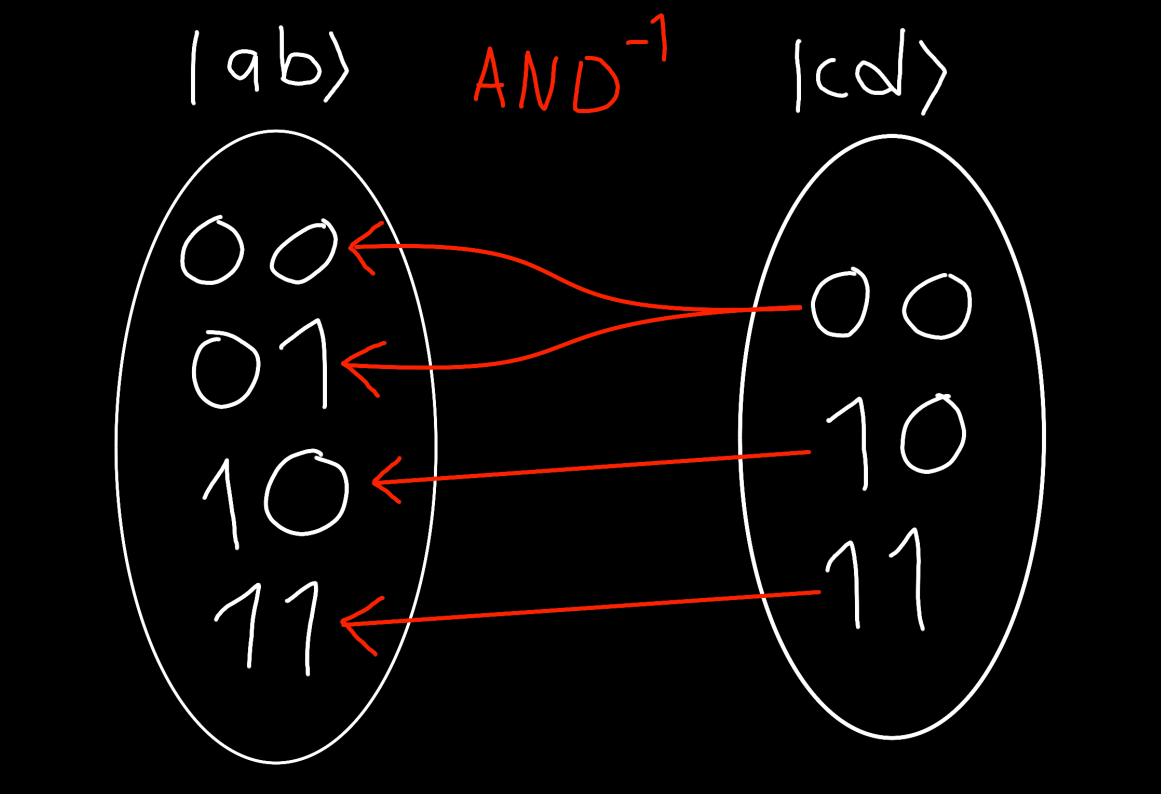 |ab⟩ AND⁻¹ |cd⟩
00
00
01
10
10
11
11